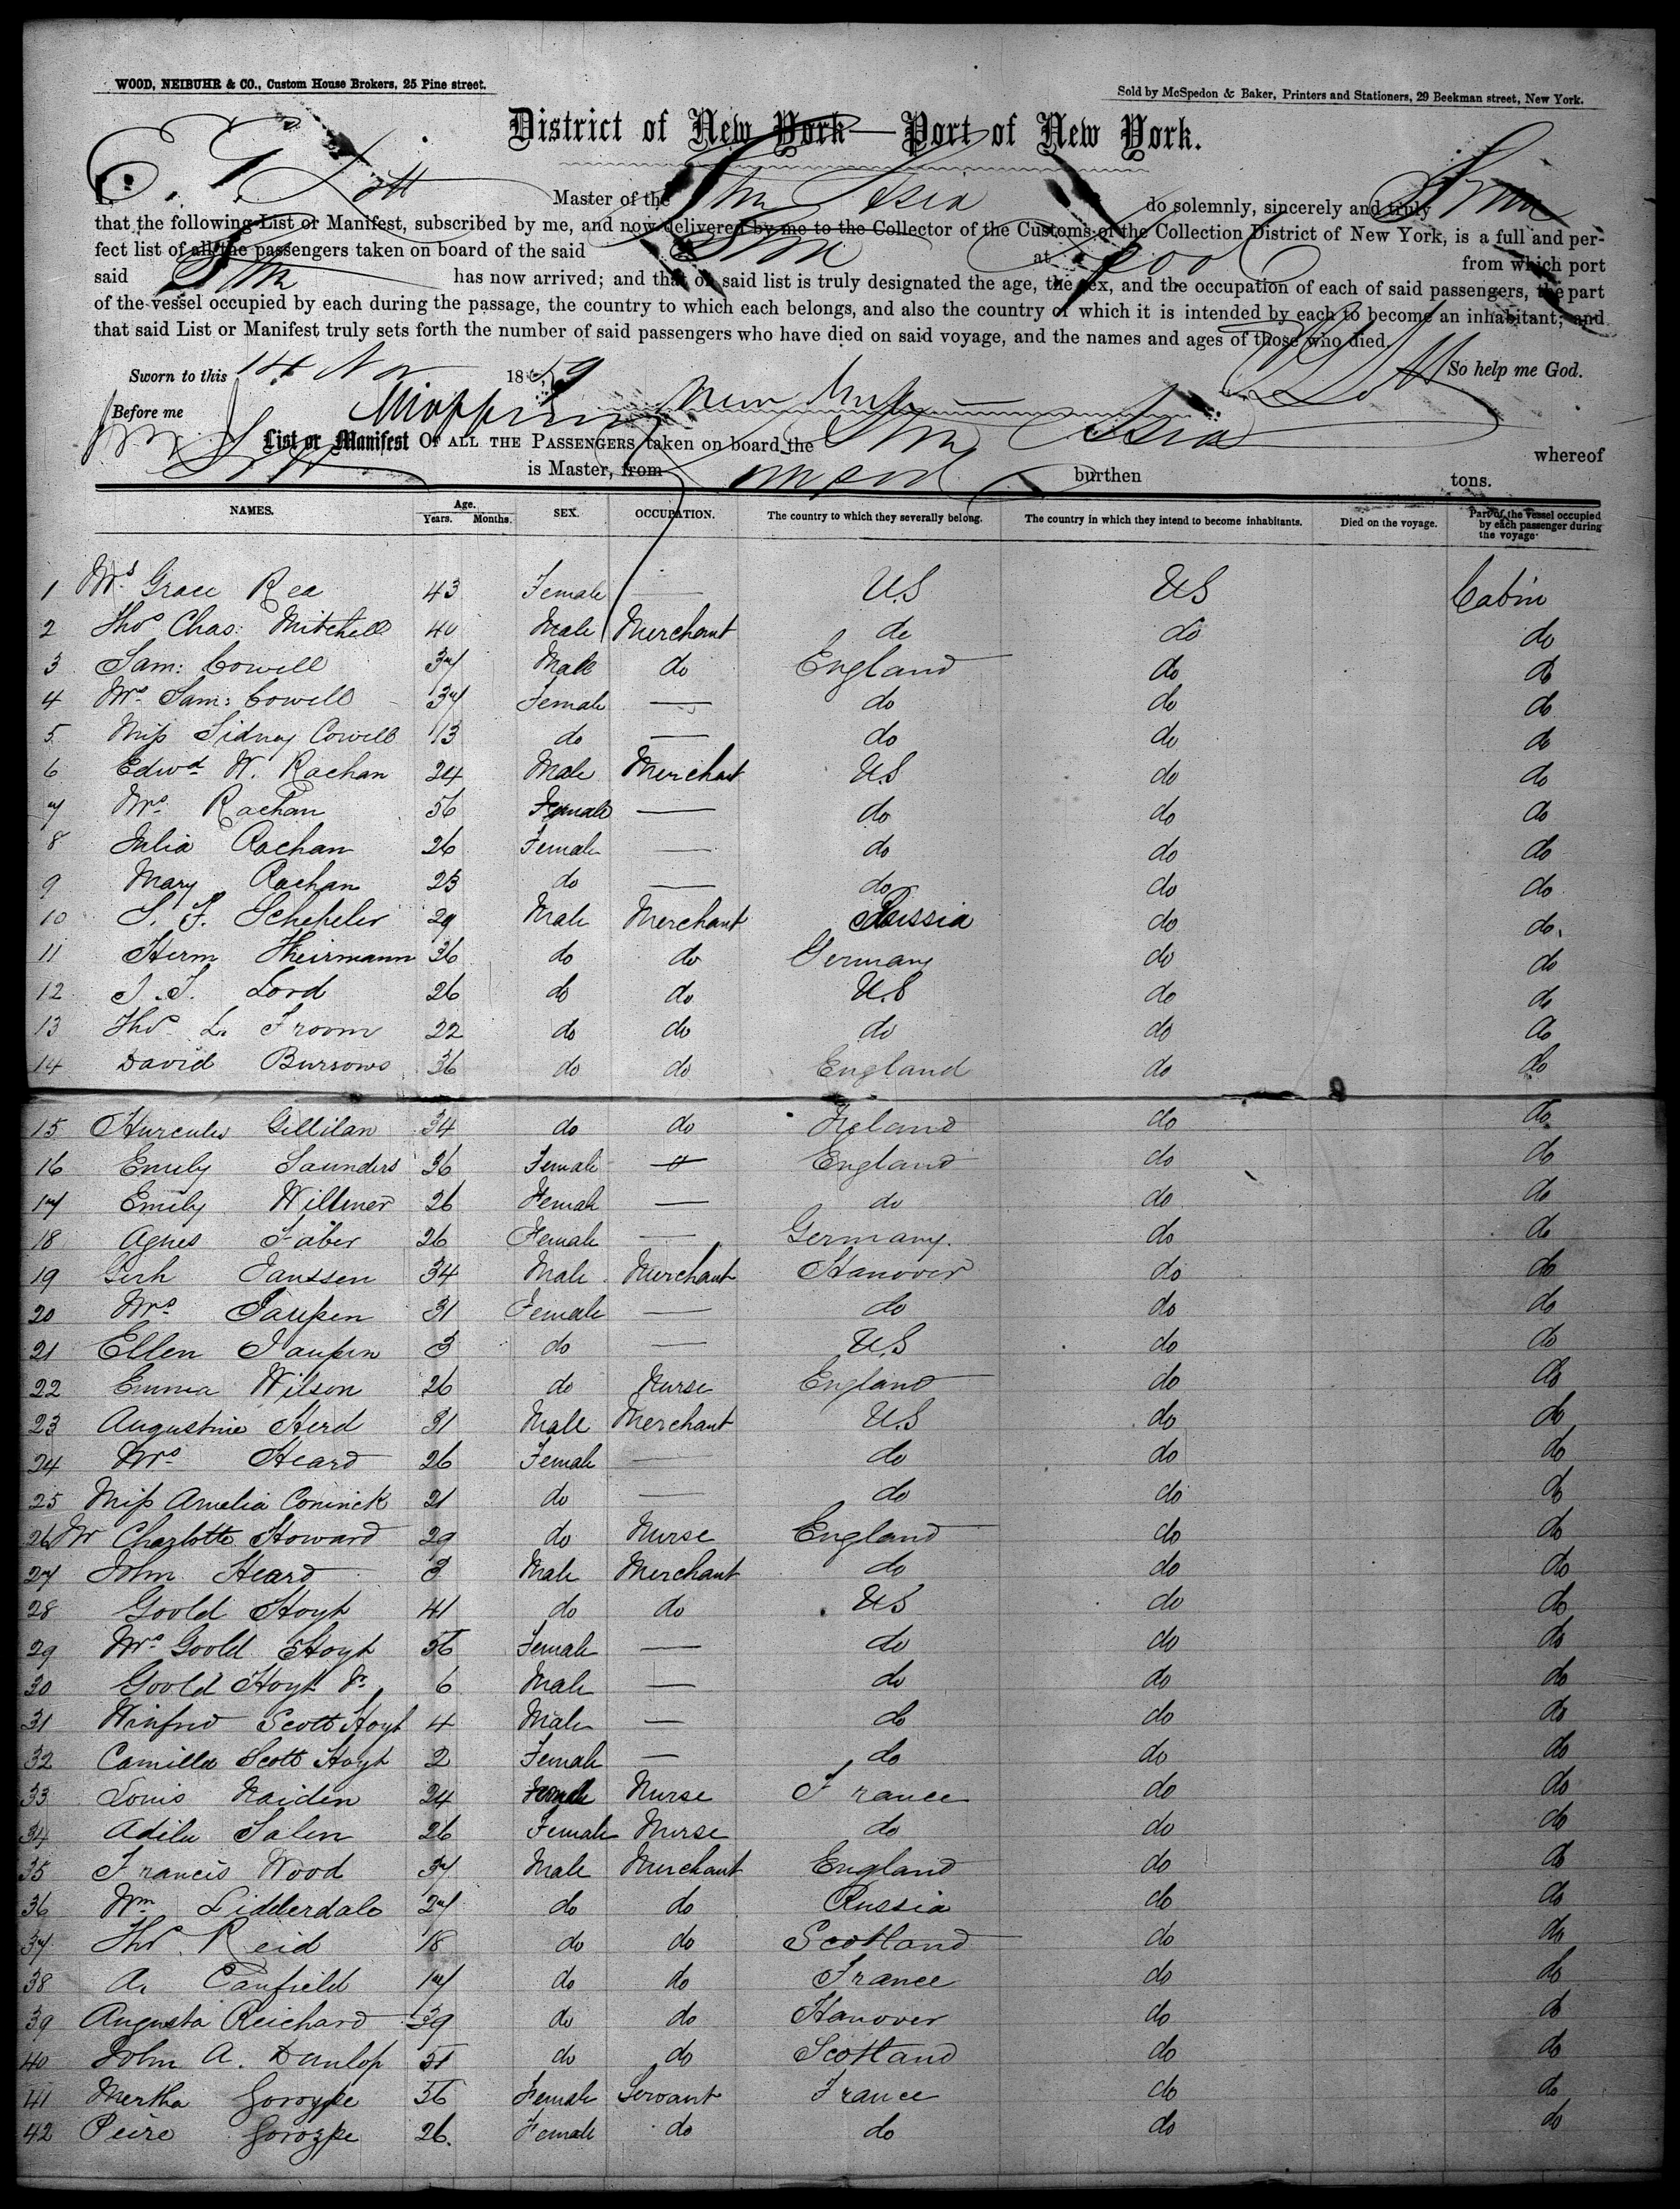 WOOD, NEIBUHR & CO., Custom House Brokers, 25 Pine street.
Sold by McSpedon & Baker, Printers and Stationers, 29 Beekman street, New York.
District of New York—Port of New York.
I, E. G. Lott Master of the Stm Asia do solemnly, sincerely and truly Swear
that the following List or Manifest, subscribed by me, and now delivered by me to the Collector of the Customs of the Collection District of New York, is a full and per-
fect list of all the passengers taken on board of the said Stm at L'pool from which port
said Stm has now arrived; and that on said list is truly designated the age, the sex, and the occupation of each of said passengers, the part
of the vessel occupied by each during the passage, the country to which each belongs, and also the country of which it is intended by each to become an inhabitant; and
that said List or Manifest truly sets forth the number of said passengers who have died on said voyage, and the names and ages of those who died.
Sworn to this 14 Nov 1859 Lott So help me God.
Before me
List or Manifest OF ALL THE PASSENGERS taken on board the Stm Asia whereof
Lott is Master, from burthen tons.
NAMES. Age. Years. Months. SEX. OCCUPATION. The country to which they severally belong. The country in which they intend to become inhabitants. Died on the voyage. Part of the vessel occupied by each passenger during the voyage.
1 Mrs Grace Rea 43 Female — U.S US Cabin
2 Thos Chas: Mitchell 40 Male Merchant do do do
3 Sam: Cowell 37 Male do England do do
4 Mrs Sam: Cowell 37 Female — do do do
5 Miss Sidney Cowell 13 do — do do do
6 Edwd W. Rachan 24 Male Merchant U.S do do
7 Mrs Rachan 56 Female — do do do
8 Julia Rachan 26 Female — do do do
9 Mary Rachan 23 do — do do do
10 S. F. Schepeler 29 Male Merchant Russia do do.
11 Herm Heirmann 36 do do Germany do do
12 J. T. Lord 26 do do U.S do do
13 Thos L. Froom 22 do do do do do
14 David Burrows 36 do do England do do
15 Hurcules Gillilan 34 do do Ireland do do
16 Emily Saunders 36 Female — England do do
17 Emily Willmer 26 Female — do do do
18 Agnes Faber 26 Female — Germany. do do
19 Gerh Janssen 34 Male Merchant Hanover do do
20 Mrs Janssen 31 Female — do do do
21 Ellen Janssen 3 do — U.S do do
22 Emma Wilson 26 do Nurse England do do
23 Augustine Herd 31 Male Merchant U.S do do
24 Mrs Heard 26 Female — do do do
25 Miss Amelia Coninck 21 do — do do do
26 Charlotte Howard 29 do Nurse England do do
27 John Heard 3 Male Merchant do do do
28 Goold Hoyt 41 do do US do do
29 Mrs Goold Hoyt 36 Female — do do do
30 Goold Hoyt Jr 6 Male — do do do
31 Winfred Scott Hoyt 4 Male — do do do
32 Camilla Scott Hoyt 2 Female — do do do
33 Louis Naiden 24 Female Nurse France do do
34 Adile Salen 26 Female Nurse do do do
35 Francis Wood 37 Male Merchant England do do
36 Wm Lidderdale 27 do do Russia do do
37 Thos Reid 18 do do Scotland do do
38 A. Canfield 17 do do France do do
39 Augusta Reichard 39 do do Hanover do do
40 John A. Dunlop 51 do do Scotland do do
41 Mertha 56 Female Servant France do do
42 Peire 26. Female do do do do